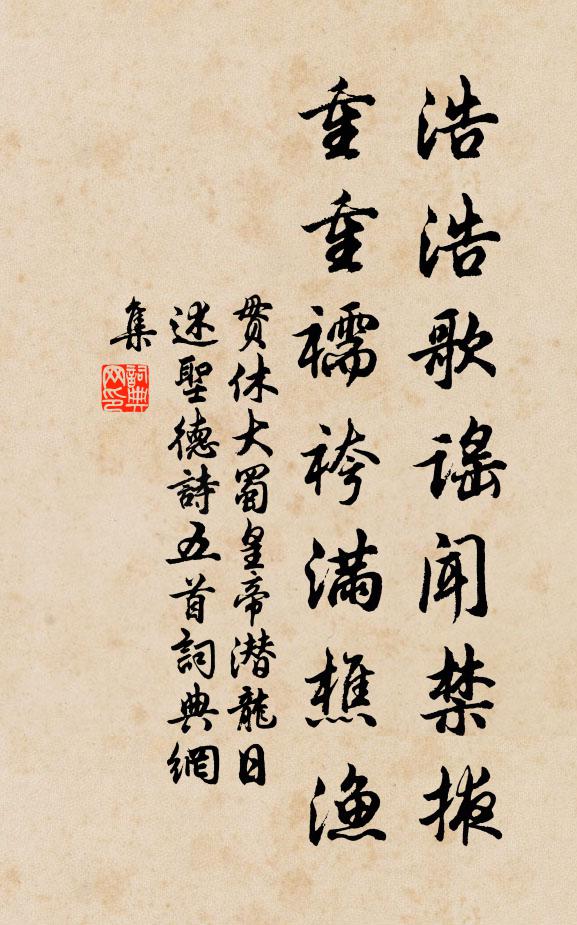 浩浩歌謠聞禁掖
重重襦袴滿樵漁
貫休大蜀皇帝潛龍日
述聖德詩五首詞典網
集
詞典網印